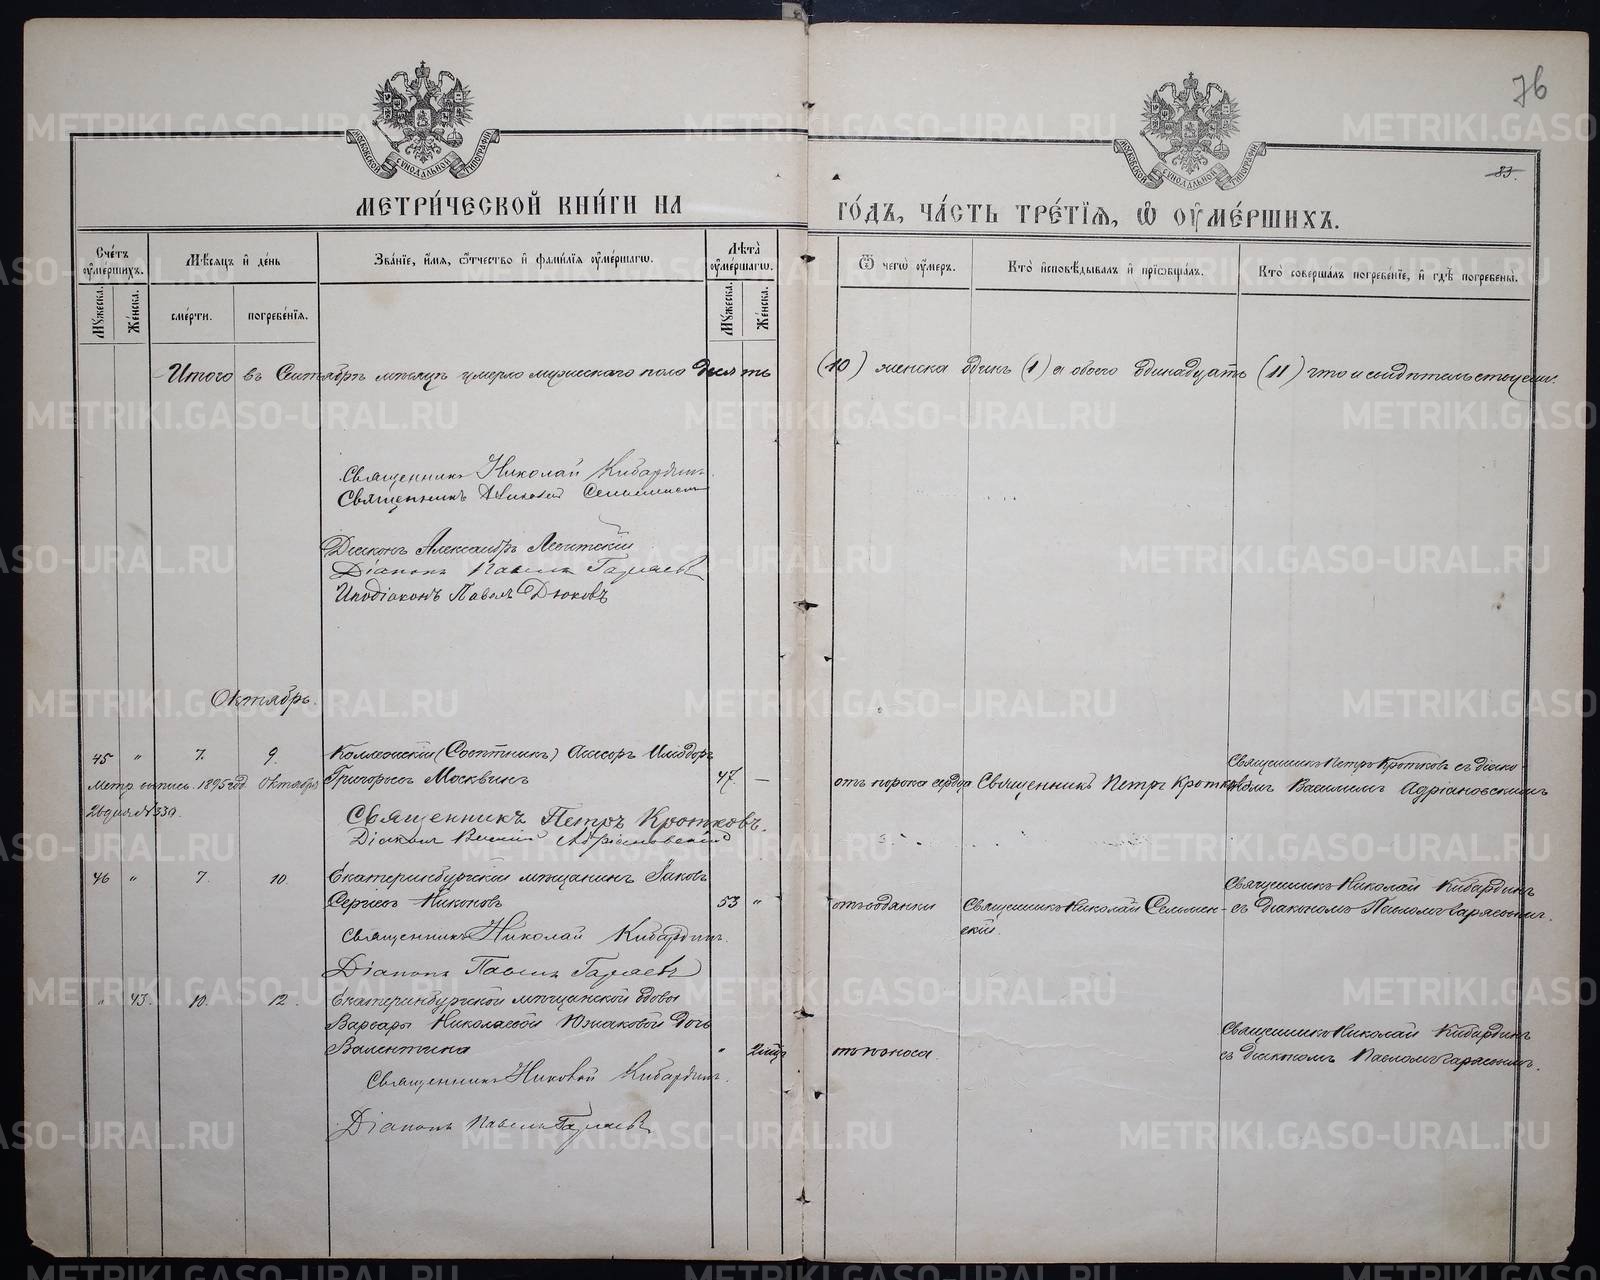 76
83.
МЕТРИ́ЧЕСКОЙ КНИ́ГИ НА ГО́ДЪ, ЧА́СТЬ ТРЕ́ТІѦ, Ѡ҆ ОУ҆МЕ́РШИХЪ.
МОСКОВСКОЙ СѴНОДАЛЬНОЙ ТИПОГРАФІИ
МОСКОВСКОЙ СѴНОДАЛЬНОЙ ТИПОГРАФІИ
Сче́тъ оу҆ме́ршихъ.
Мꙋ́жеска.
Же́нска.
Мѣ́сѧцъ и҆ де́нь
сме́рти.
погребе́нїѧ.
Зва́нїе, и҆́мѧ, ѻ҆́тчество и҆ фами́лїѧ оу҆ме́ршагѡ.
Лѣ́та оу҆ме́ршагѡ.
Мꙋ́жеска.
Же́нска.
Ѿ чегѡ̀ оу҆́меръ.
Кто̀ и҆сповѣ́дывалъ и҆ прїѡбща́лъ.
Кто̀ соверша́лъ погребе́нїе, и҆ гдѣ̀ погребены̀.
Итого въ Сентябрѣ мѣсяцѣ умерло мужескаго пола десять (10) женска одинъ (1) а обоего одинадцать (11) что и свидѣтельствуемъ.
Священникъ Николай Кибардинъ.
Священникъ Николай
Діаконъ Александръ
Діаконъ Павелъ Гаряевъ
Иподіаконъ Павелъ Дюковъ
Октябрь.
45 " 7. 9. Коллежскій (Совѣтникъ) Асесоръ Исидоръ
Григорьевъ Москвинъ 47. — отъ порока сердца Священникъ Петръ Кротковъ
Священникъ Петръ Кротковъ съ діакономъ Василіемъ Адріановскимъ
Метр. выпись. 1895 год. Октября
26 дня № 339.
Священникъ Петръ Кротковъ.
Діаконъ Василій Адріановскій
46 " 7. 10. Екатеринбургскій мѣщанинъ Іаковъ
Сергіевъ Никоновъ 53 " отъ водянки Священникъ Николай
скій.
Священникъ Николай Кибардинъ
съ діакономъ Павломъ Гаряевымъ.
Священникъ Николай Кибардинъ.
Діаконъ Павелъ Гаряевъ
" 43. 10. 12. Екатеринбургской мѣщанской вдовы
Варвары Николаевой Южаковой дочь
Валентина " 2 мѣс. отъ поноса.
Священникъ Николай Кибардинъ
съ діакономъ Павломъ Гаряевымъ.
Священникъ Николай Кибардинъ.
Діаконъ Павелъ Гаряевъ
METRIKI.GASO-URAL.RU